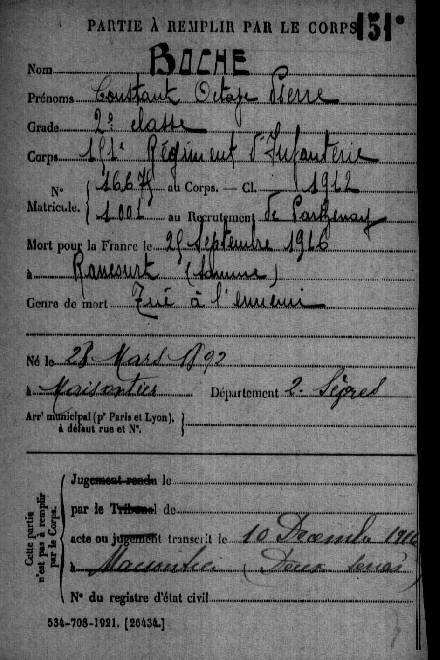 PARTIE À REMPLIR PAR LE CORPS 151e
Nom BOCHE
Prénoms Constant Octave Pierre
Grade 2e classe
Corps 151e Régiment d'Infanterie
N° Matricule. { 16675 au Corps. — Cl. 1912
1001 au Recrutement de Parthenay
Mort pour la France le 25 Septembre 1916
à Rancourt (Somme)
Genre de mort Tué à l'ennemi
Né le 28 Mars 1892
à Maisontiers Département 2. Sèvres
Arr' municipal (p' Paris et Lyon), à défaut rue et N°. }
Cette partie n'est pas à remplir par le Corps.
Jugement rendu le
par le Tribunal de
acte ou jugement transcrit le 10 Décembre 1916
à (Deux Sèvres)
N° du registre d'état civil
534-708-1921. [26434.]